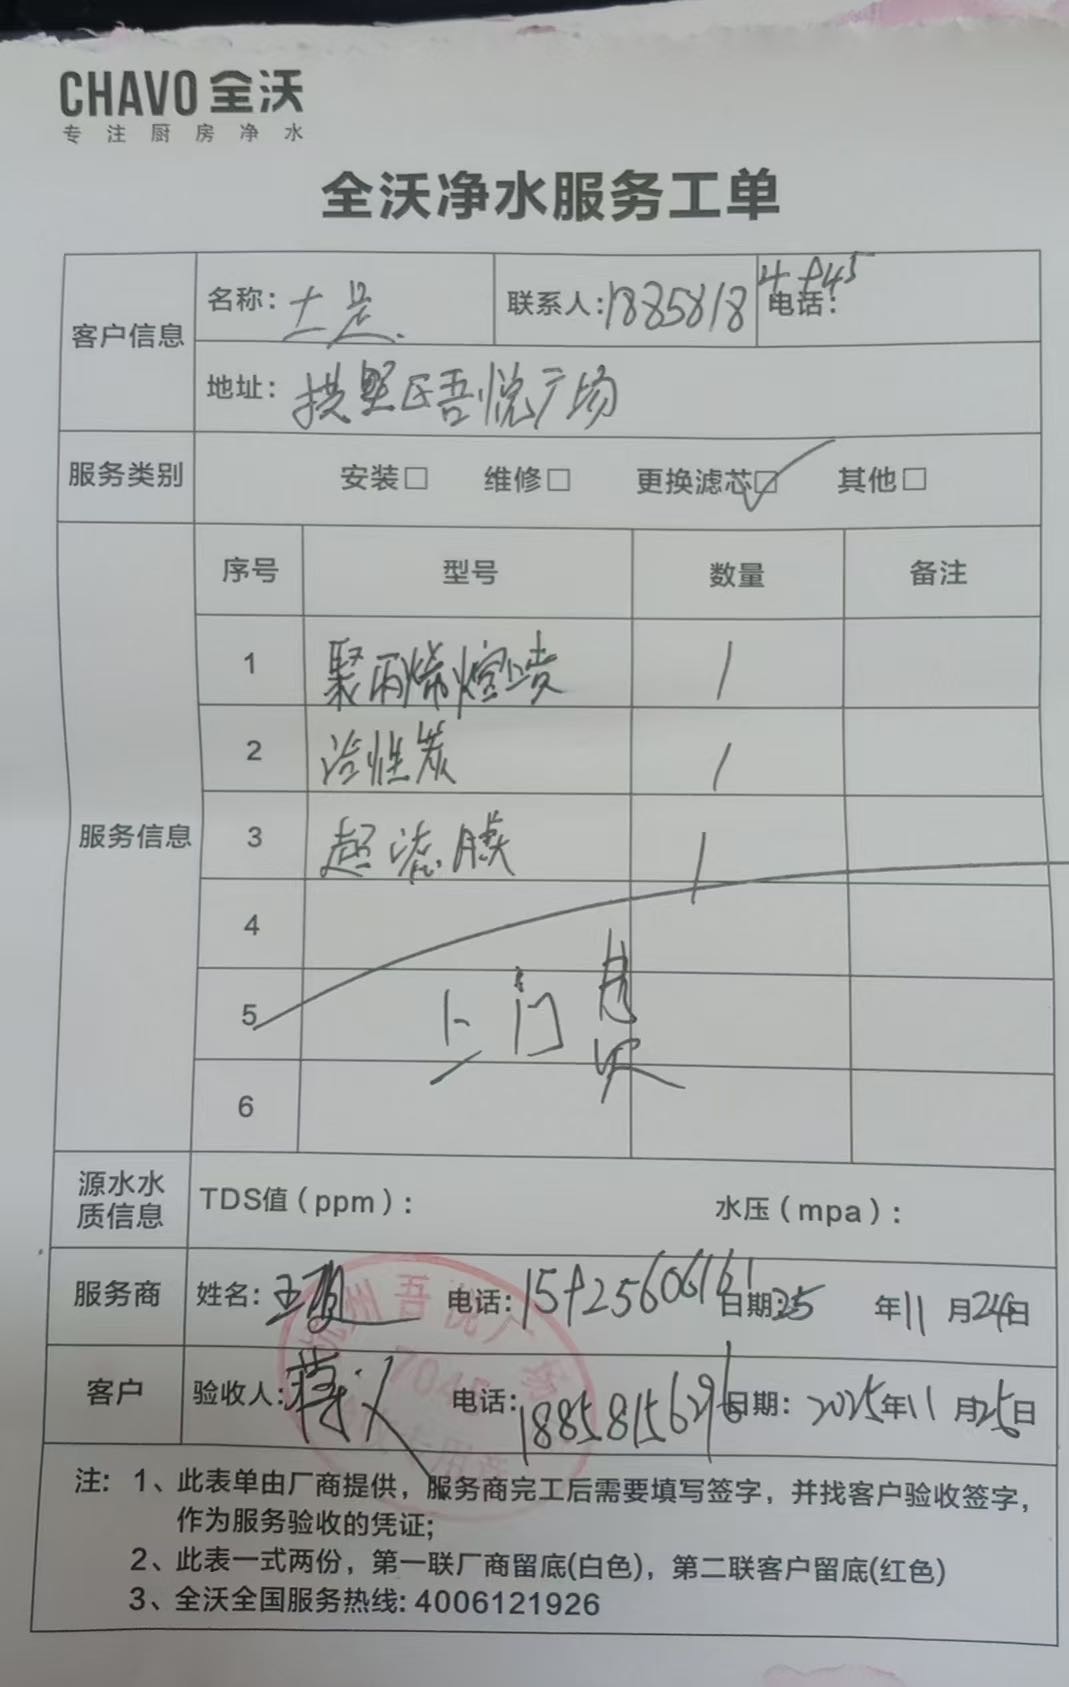 CHAVO 全沃
专注厨房净水
全沃净水服务工单
客户信息
名称:
联系人:1885818
电话:
地址: 拱墅区吾悦广场
服务类别
安装□ 维修□ 更换滤芯☑ 其他□
服务信息
序号 型号 数量 备注
1 聚丙烯熔喷 1
2 活性炭 1
3 超滤膜 1
4
5
上门
6
源水水质信息
TDS值(ppm): 水压(mpa):
服务商 姓名: 电话: 日期:25年11月24日
客户 验收人: 电话:18858156296 日期: 2025年11月25日
杭州吾悦广场
注: 1、此表单由厂商提供,服务商完工后需要填写签字,并找客户验收签字,
作为服务验收的凭证;
2、此表一式两份,第一联厂商留底(白色),第二联客户留底(红色)
3、全沃全国服务热线: 4006121926